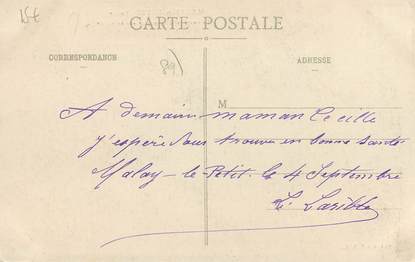 15€
CARTE POSTALE
CORRESPONDANCE
ADRESSE
89
M
A demain maman Cecille
j'espère Vous trouver en bonne santé
Malay-le-Petit le 4 Septembre